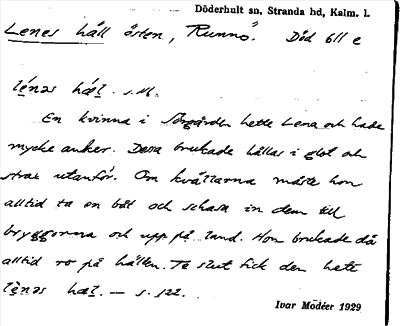 Döderhult sn, Stranda hd, Kalm. l.
Lenes häll östen, "Runnö". Död 611 e
lé̱nəs hæl. s.M.
En kvinna i Norgården hette Lena och hade
mycke ankor. Dessa brukade hållas i glot och
strax utanför. Om kvällarna måste hon
alltid ta en båt och schasa in dem till
bryggorna och upp på land. Hon brukade då
alltid ro på hällen. Te slut fick den hete
lè̱nəs hæl. – s. 122.
Ivar Modéer 1929